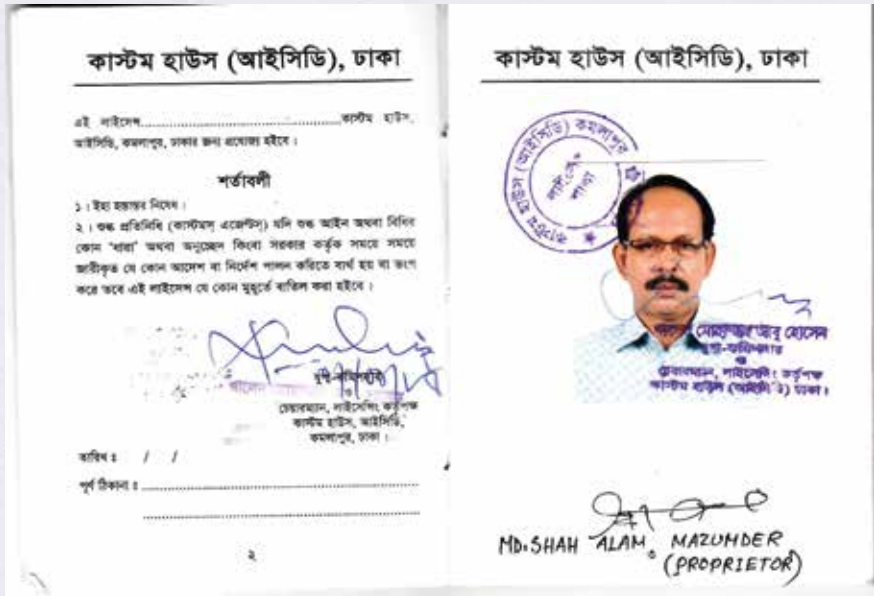 কাস্টম হাউস (আইসিডি), ঢাকা
এই লাইসেন্স..............................................কাস্টম হাউস,
আইসিডি, কমলাপুর, ঢাকার জন্য প্রযোজ্য হইবে।
শর্তাবলী
১। ইহা হস্তান্তর নিষেধ।
২। শুল্ক প্রতিনিধি (কাস্টমস্ এজেন্টস্) যদি শুল্ক আইন অথবা বিধির
কোন 'ধারা' অথবা অনুচ্ছেদ কিংবা সরকার কর্তৃক সময়ে সময়ে
জারীকৃত যে কোন আদেশ বা নির্দেশ পালন করিতে ব্যর্থ হয় বা ভংগ
করে তবে এই লাইসেন্স যে কোন মুহূর্তে বাতিল করা হইবে।
চেয়ারম্যান, লাইসেন্সিং কর্তৃপক্ষ
কাস্টম হাউস, আইসিডি,
কমলাপুর, ঢাকা।
তারিখ ঃ / /
পূর্ণ ঠিকানা ঃ ..............................................
২
কাস্টম হাউস (আইসিডি), ঢাকা
কাস্টম হাউস (আইসিডি) কমলাপুর
শাখা
আবু হোসেন
যুগ্ম-কমিশনার
ও
চেয়ারম্যান, লাইসেন্সিং কর্তৃপক্ষ
কাস্টম হাউস (আইসিডি) ঢাকা।
MD. SHAH ALAM MAZUMDER
(PROPRIETOR)